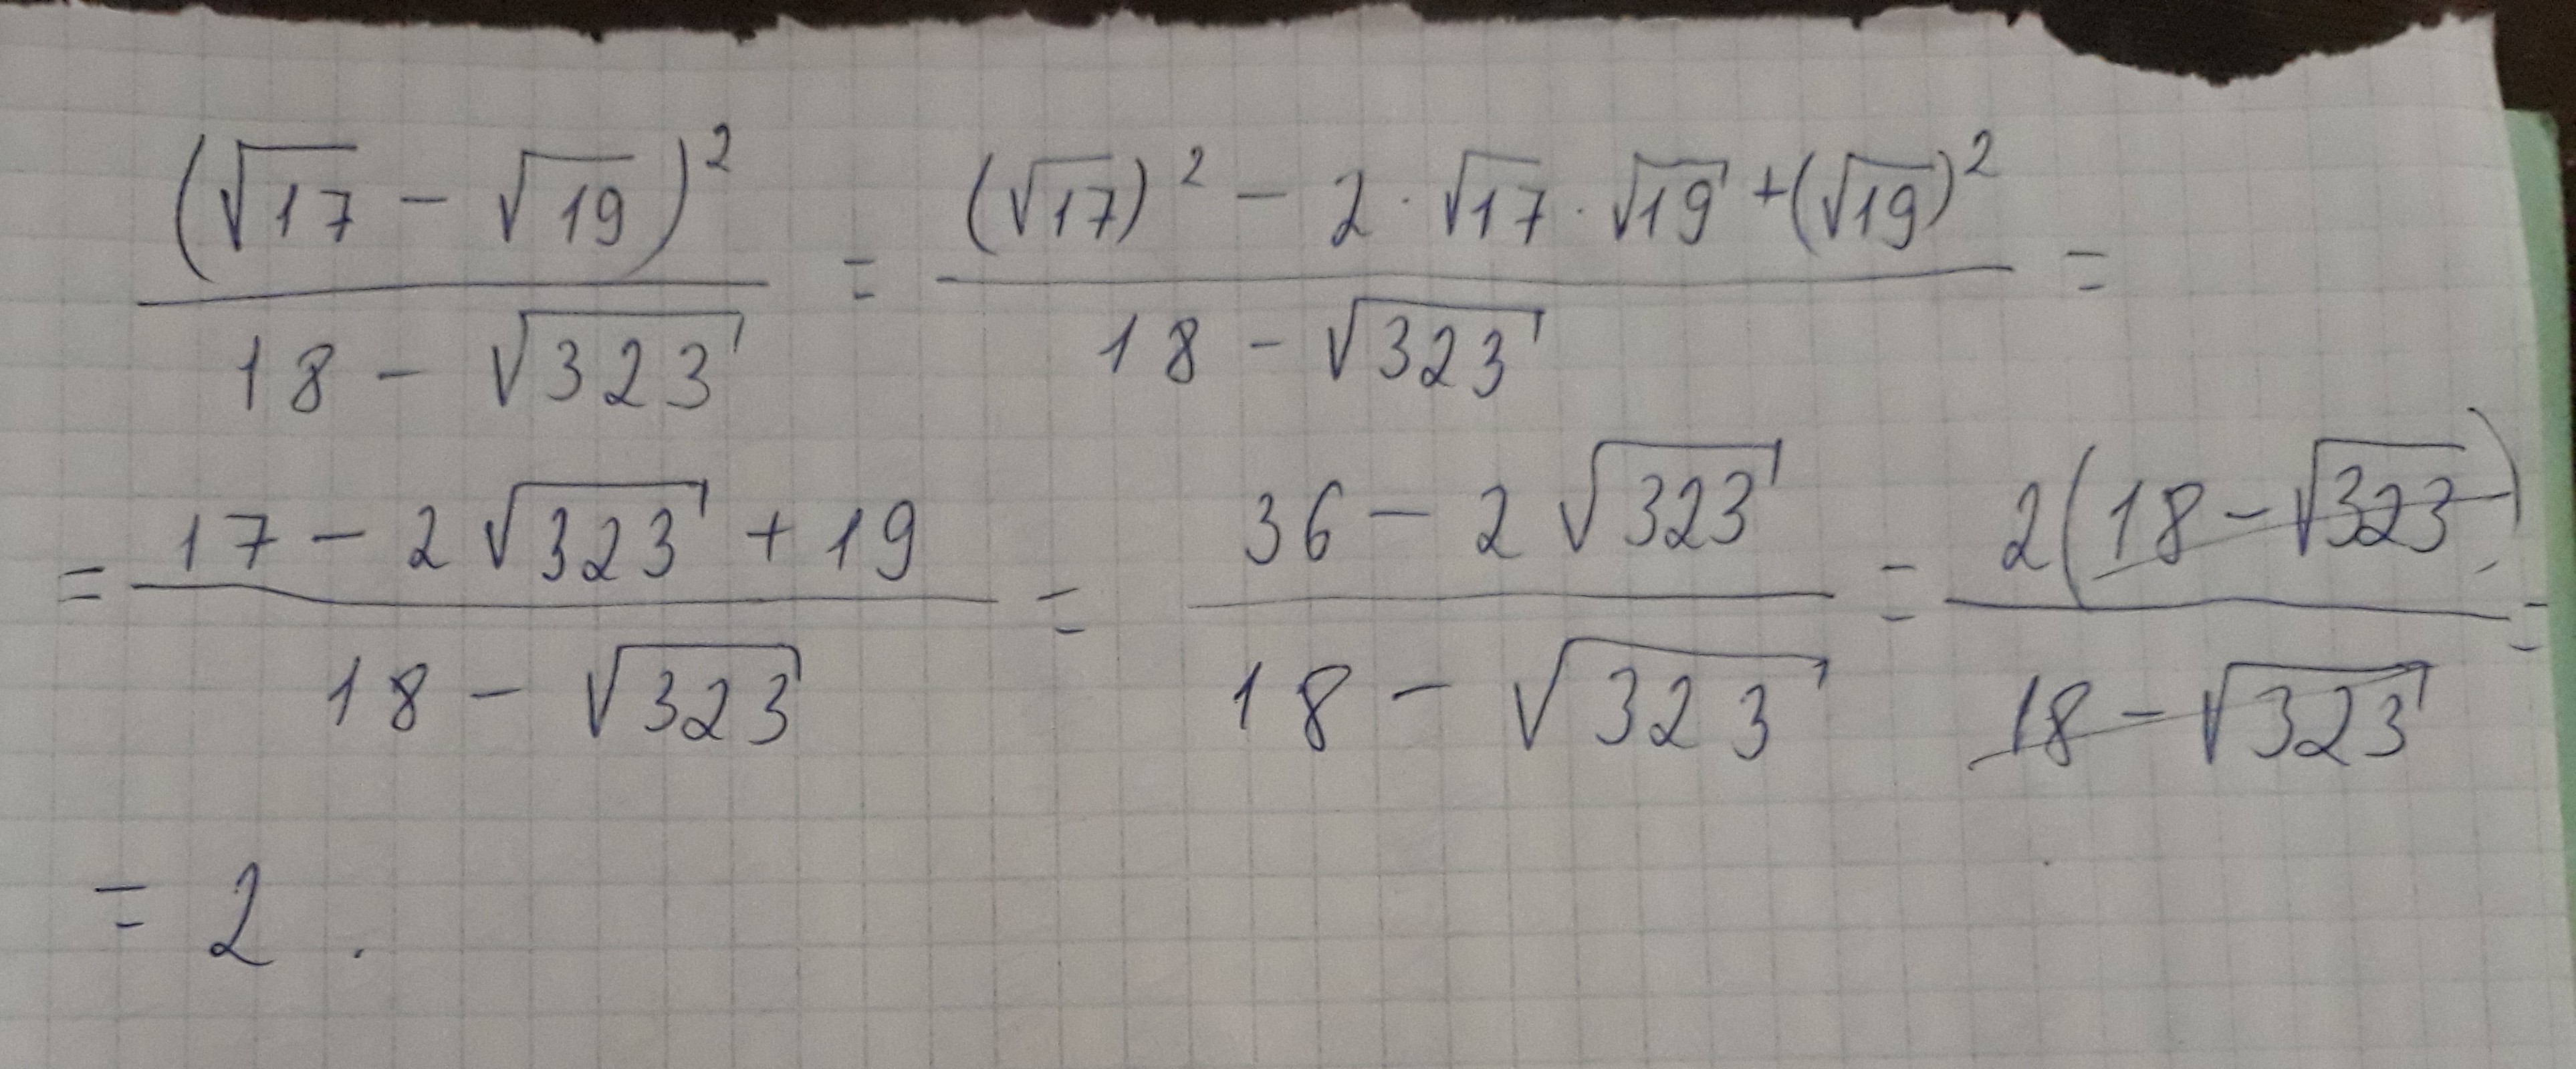 (√17 − √19)² / (18 − √323) = ((√17)² − 2 · √17 · √19 + (√19)²) / (18 − √323) =
= (17 − 2√323 + 19) / (18 − √323) = (36 − 2√323) / (18 − √323) = 2(18 − √323) / (18 − √323) =
= 2.